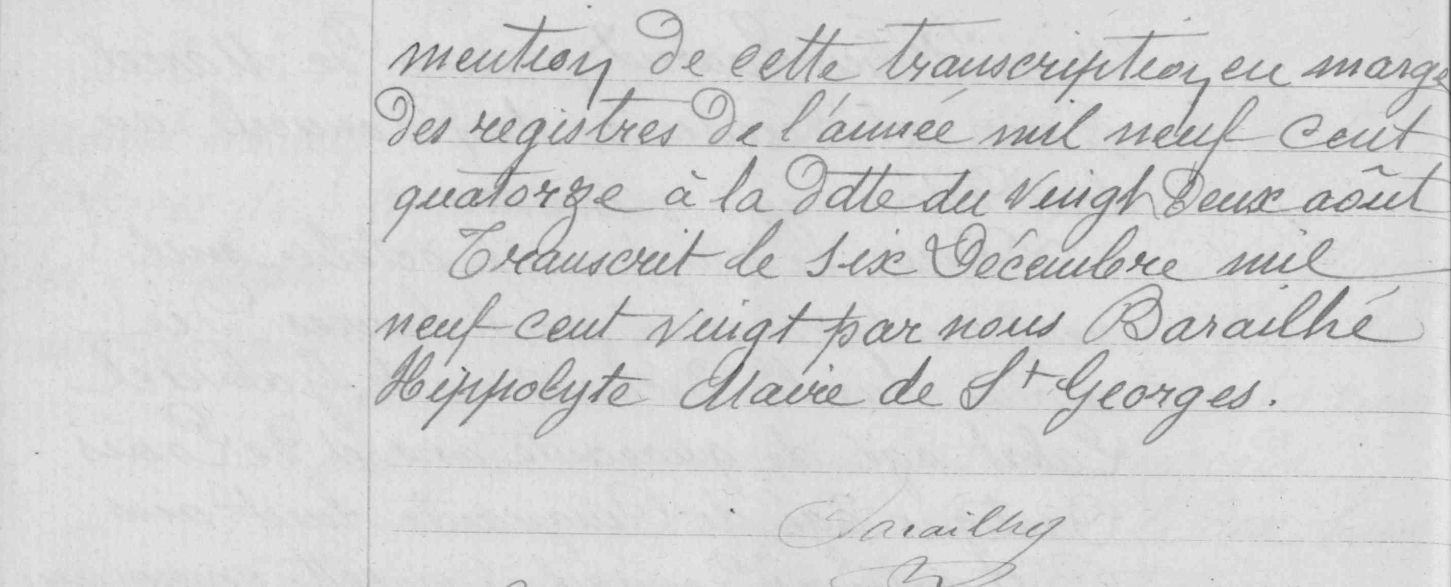 mention de cette transcription en marge
des registres de l'année mil neuf cent
quatorze à la date du vingt deux août
Transcrit le six Décembre mil
neuf cent vingt par nous Barailhé
Hippolyte Maire de St Georges.
Barailhé